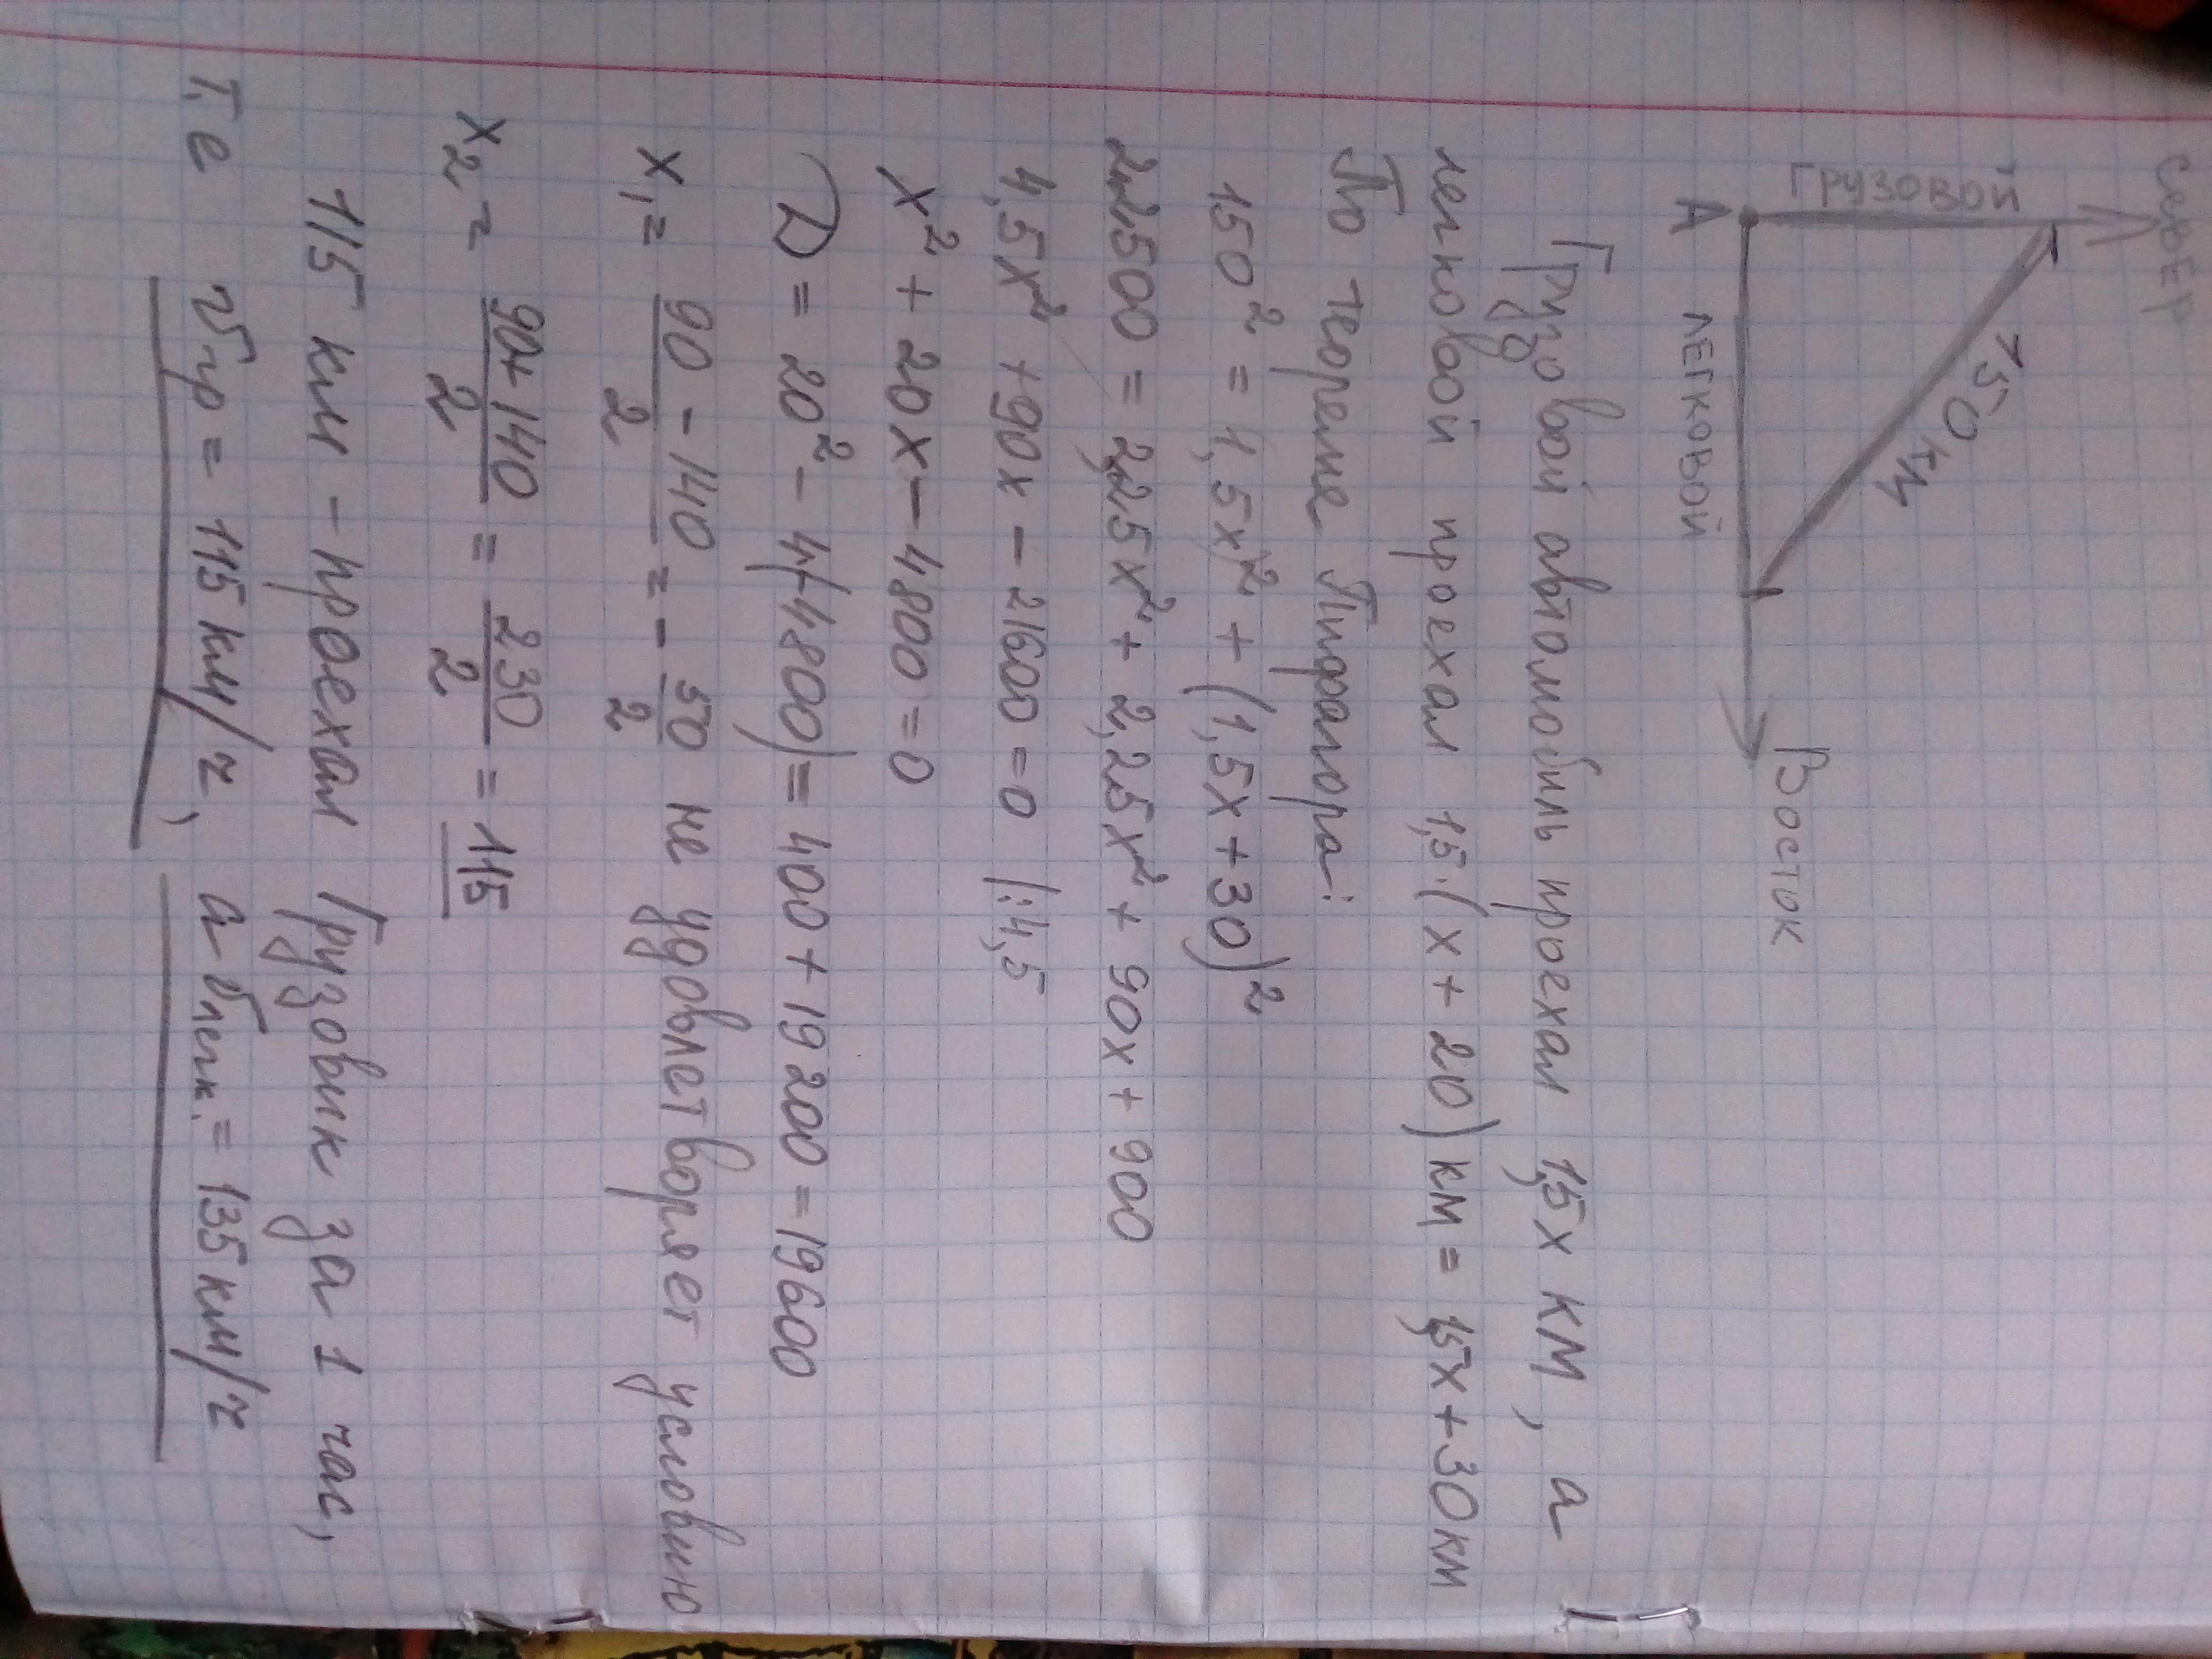 Север
Грузовой
150 км
А легковой
Восток
Грузовой автомобиль проехал 1,5x км, а
легковой проехал 1,5·(x+20) км = 1,5x+30км
По теореме Пифагора:
150² = 1,5x² + (1,5x+30)²
22500 = 2,25x² + 2,25x² + 90x + 900
4,5x² + 90x - 21600 = 0 |:4,5
x² + 20x - 4800 = 0
D = 20² - 4(-4800) = 400 + 19200 = 19600
x₁ = (90 - 140)/2 = - 50/2 не удовлетворяет условию
x₂ = (90 + 140)/2 = 230/2 = 115
115 км - проехал грузовик за 1 час,
Т.е vгр = 115 км/ч, а vлегк. = 135 км/ч